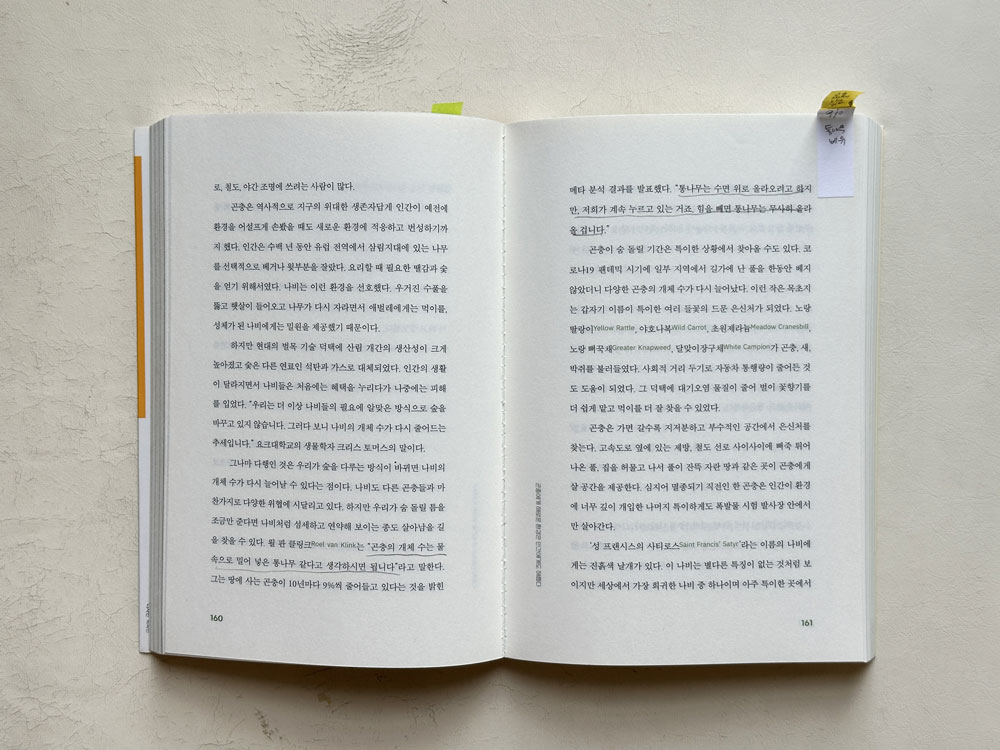 로, 철도, 야간 조명에 쓰려는 사람이 많다.
곤충은 역사적으로 지구의 위대한 생존자답게 인간이 예전에
환경을 어설프게 손봤을 때도 새로운 환경에 적응하고 번성하기까
지 했다. 인간은 수백 년 동안 유럽 전역에서 삼림지대에 있는 나무
를 선택적으로 베거나 윗부분을 잘랐다. 요리할 때 필요한 땔감과 숯
을 얻기 위해서였다. 나비는 이런 환경을 선호했다. 우거진 수풀을
뚫고 햇살이 들어오고 나무가 다시 자라면서 애벌레에게는 먹이를,
성체가 된 나비에게는 밀원을 제공했기 때문이다.
하지만 현대의 벌목 기술 덕택에 산림 개간의 생산성이 크게
높아졌고 숯은 다른 연료인 석탄과 가스로 대체되었다. 인간의 생활
이 달라지면서 나비들은 처음에는 혜택을 누리다가 나중에는 피해
를 입었다. “우리는 더 이상 나비들의 필요에 알맞은 방식으로 숲을
바꾸고 있지 않습니다. 그러다 보니 나비의 개체 수가 다시 줄어드는
추세입니다.” 요크대학교의 생물학자 크리스 토머스의 말이다.
그나마 다행인 것은 우리가 숲을 다루는 방식이 바뀌면 나비의
개체 수가 다시 늘어날 수 있다는 점이다. 나비도 다른 곤충들과 마
찬가지로 다양한 위협에 시달리고 있다. 하지만 우리가 숨 돌릴 틈을
조금만 준다면 나비처럼 섬세하고 연약해 보이는 종도 살아남을 길
을 찾을 수 있다. 룰 판 클링크Roel van Klink는 “곤충의 개체 수는 물
속으로 밀어 넣은 통나무 같다고 생각하시면 됩니다”라고 말한다.
그는 땅에 사는 곤충이 10년마다 9%씩 줄어들고 있다는 것을 밝힌
160
메타 분석 결과를 발표했다. “통나무는 수면 위로 올라오려고 하지
만, 저희가 계속 누르고 있는 거죠. 힘을 빼면 통나무는 무사히 올라
올 겁니다.”
곤충이 숨 돌릴 기간은 특이한 상황에서 찾아올 수도 있다. 코
로나19 팬데믹 시기에 일부 지역에서 길가에 난 풀을 한동안 베지
않았더니 다양한 곤충의 개체 수가 다시 늘어났다. 이런 작은 목초지
는 갑자기 이름이 특이한 여러 들꽃의 드문 은신처가 되었다. 노랑
딸랑이Yellow Rattle, 야호나복Wild Carrot, 초원제라늄Meadow Cranesbill,
노랑 뻐꾹채Greater Knapweed, 달맞이장구채White Campion가 곤충, 새,
박쥐를 불러들였다. 사회적 거리 두기로 자동차 통행량이 줄어든 것
도 도움이 되었다. 그 덕택에 대기오염 물질이 줄어 벌이 꽃향기를
더 쉽게 맡고 먹이를 더 잘 찾을 수 있었다.
곤충은 가면 갈수록 지저분하고 부수적인 공간에서 은신처를
찾는다. 고속도로 옆에 있는 제방, 철도 선로 사이사이에 삐죽 튀어
나온 풀, 집을 허물고 나서 풀이 잔뜩 자란 땅과 같은 곳이 곤충에게
살 공간을 제공한다. 심지어 멸종되기 직전인 한 곤충은 인간이 환경
에 너무 깊이 개입한 나머지 특이하게도 폭발물 시험 발사장 안에서
만 살아간다.
‘성 프랜시스의 사티로스Saint Francis’ Satyr’라는 이름의 나비에
게는 진흙색 날개가 있다. 이 나비는 별다른 특징이 없는 것처럼 보
이지만 세상에서 가장 희귀한 나비 중 하나이며 아주 특이한 곳에서
161